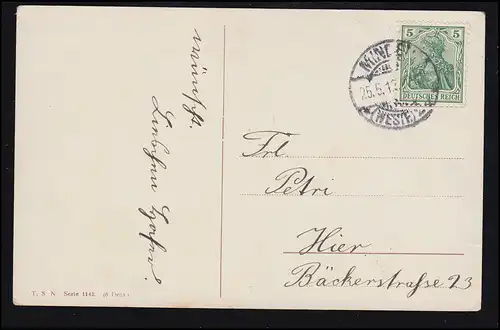 wünscht.
5 5
DEUTSCHES REICH
25.5.1
(WESTF.)
Frl.
Petri
Hier
Bäckerstraße 23
T. S. N. Serie 1142. (6 Dess.)